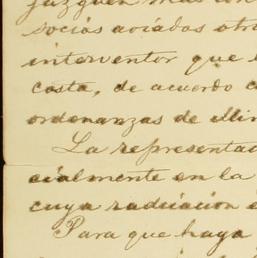 juzguen mas con
sociós aciados otro
interventor que
costa, de acuerdo c
ordenanzas de
La representac
cialmente en la
cuya radicacion
Para que haya